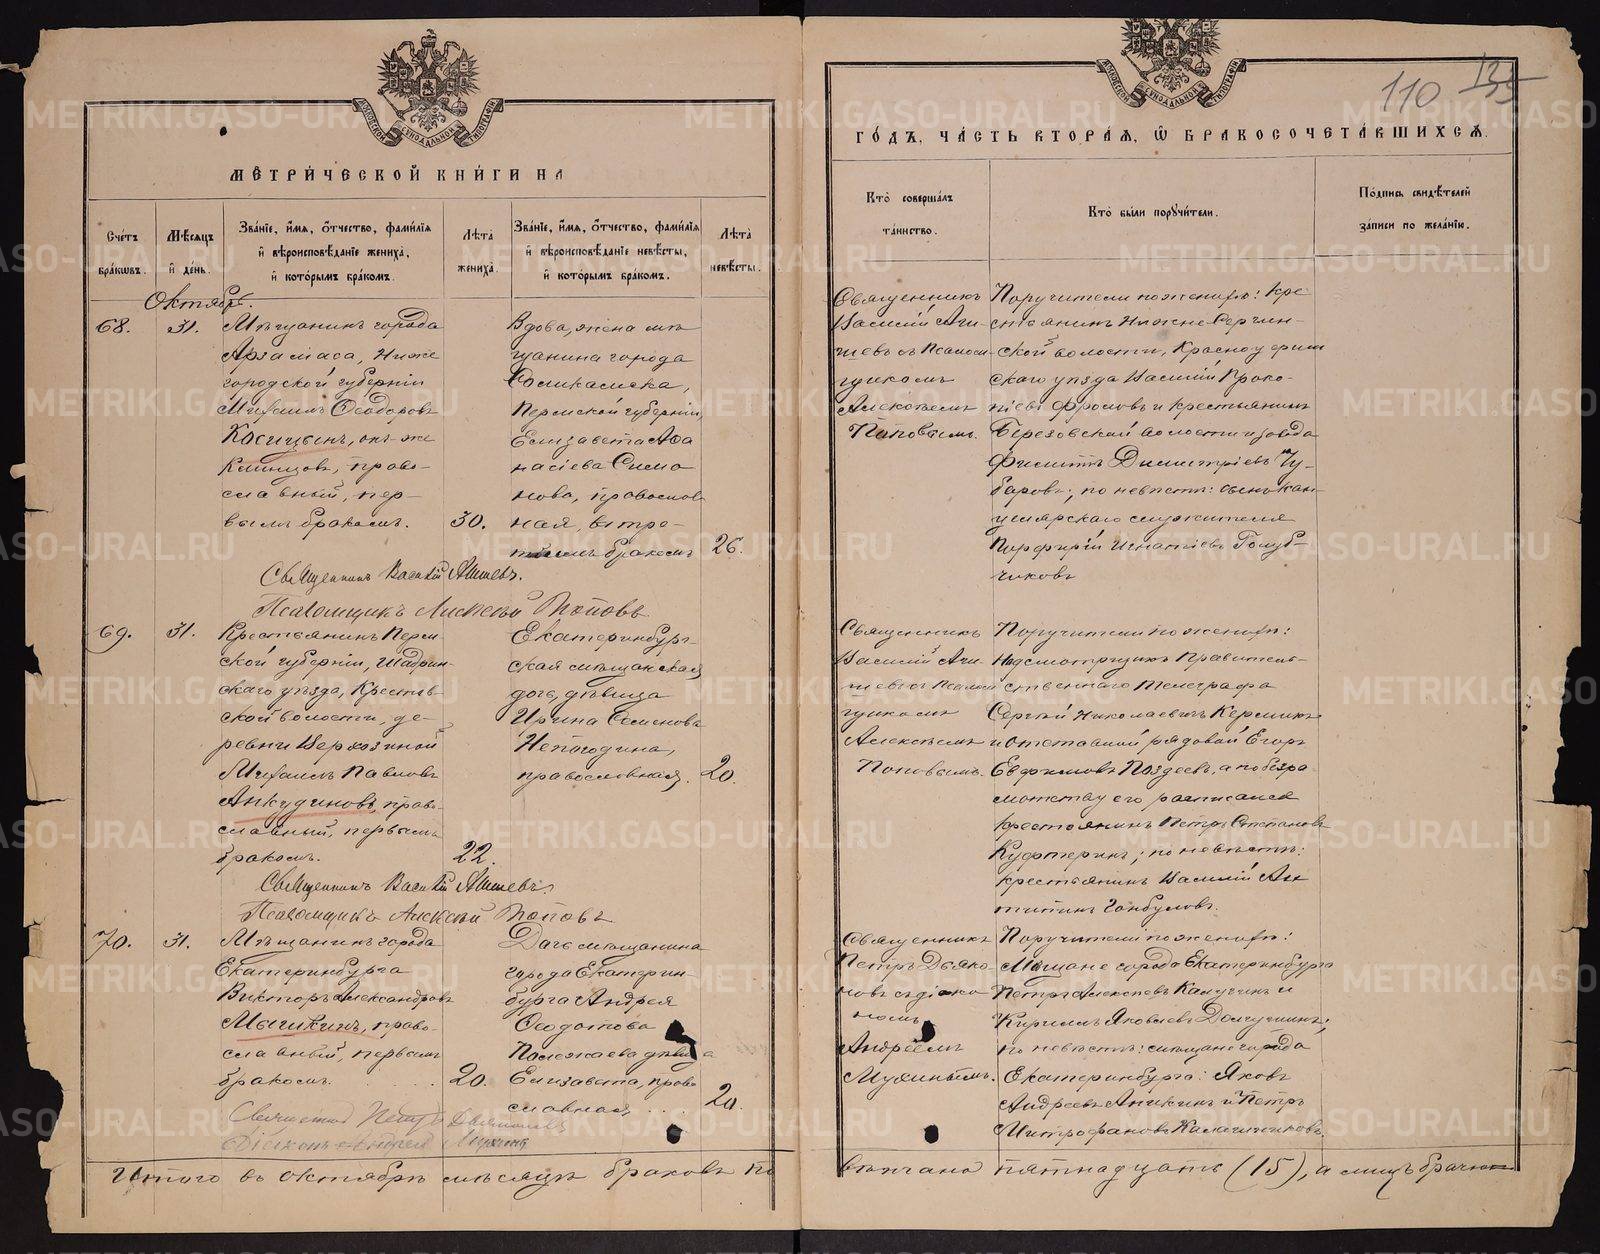 МЕТРИ́ЧЕСКОЙ КНИ́ГИ НА
Сче́тъ бра́ковъ.
Мѣ́сяцъ и҆ де́нь.
Зва́нїе, и҆́мя, ѻ҆́тчество, фами́лїя и҆ вѣроисповѣ́данїе жениха̀, и҆ кото́рымъ бра́комъ.
Лѣ́та жениха̀.
Зва́нїе, и҆́мя, ѻ҆́тчество, фами́лїя и҆ вѣроисповѣ́данїе невѣ́сты, и҆ кото́рымъ бра́комъ.
Лѣ́та невѣ́сты.
Октябрь.
68.
31.
Мѣщанинъ города
Арзамаса, Ниже
городской губерніи
Михаилъ Ѳеодоровъ
Косицынъ, онъ-же
право-
славный, пер-
вымъ бракомъ.
30.
Вдова, жена мѣ
щанина города
Соликамска,
Пермской губерніи,
Елизавета Аѳа
насіева Симо
нова, православ
ная, въ тре-
бракомъ
26.
Священникъ Василій
Псаломщикъ Алексѣй Поповъ
69.
31.
Крестьянинъ Перм
ской губерніи, Шадрин-
скаго уѣзда, Крестов
ской волости, де-
ревни
Михаилъ Павловъ
Анкудиновъ, право-
славный, первымъ
бракомъ.
22.
Екатеринбург-
ская мѣщанская
дочь, дѣвица
Ирина Семенова
Непогодина,
православная.
20.
Священникъ Василій
Псаломщикъ Алексѣй Поповъ
70.
31.
Мѣщанинъ города
Екатеринбурга
Викторъ Александровъ
право-
славный, первымъ
бракомъ.
20.
Дочь мѣщанина
города Екатерин-
бурга Андрея
Ѳеодотова
Полежаева дѣвица
Елизавета, право
славная
20.
Священникъ Петръ
Діаконъ Андрей
Итого въ октябрѣ мѣсяцѣ браковъ по
110 135
ГО́ДЪ, ЧА́СТЬ ВТОРА́Я, Ѽ БРАКОСОЧЕТА́ВШИХСЯ.
Кто̀ соверша́лъ та́инство.
Кто̀ бы́ли поручи́тели.
По́дпись свидѣ́телей за́писи по жела́нїю.
Священникъ
Василій
съ Псалом
щикомъ
Алексѣемъ
Поповымъ.
Поручители по женихѣ: кре
стьянинъ Нижне-Сергин-
ской волости, Красноуфим
скаго уѣзда Василій Проко-
піевъ Фроловъ и крестьянинъ
Березовской волости и завода
Филиппъ Димитріевъ Чу-
баровъ; по невѣстѣ: сынъ кан-
целярскаго служителя
Порфирій Игнатіевъ Голуб-
чиковъ
Священникъ
Василій
Псалом
щикомъ
Алексѣемъ
Поповымъ.
Поручители по женихѣ:
Надсмотрщикъ Правитель-
ственнаго Телеграфа
Сергѣй Николаевичъ
и отставной рядовой Егоръ
Евфимовъ Поздеевъ, а по безгра
мотству его росписался
крестьянинъ Петръ Степановъ
по невѣстѣ:
крестьянинъ Василій Ан
типинъ
Священникъ
Петръ Дьяко-
новъ съ діако
номъ
Андреемъ
Поручители по женихѣ:
Мѣщане города Екатеринбурга
Петръ Алексѣевъ и
Кириллъ Яковлевъ
по невѣстѣ: мѣщане города
Екатеринбурга: Яковъ
Андреевъ Аникинъ и Петръ
Митрофановъ
вѣнчано пятнадцать (15), а лицъ брачив
METRIKI.GASO-URAL.RU